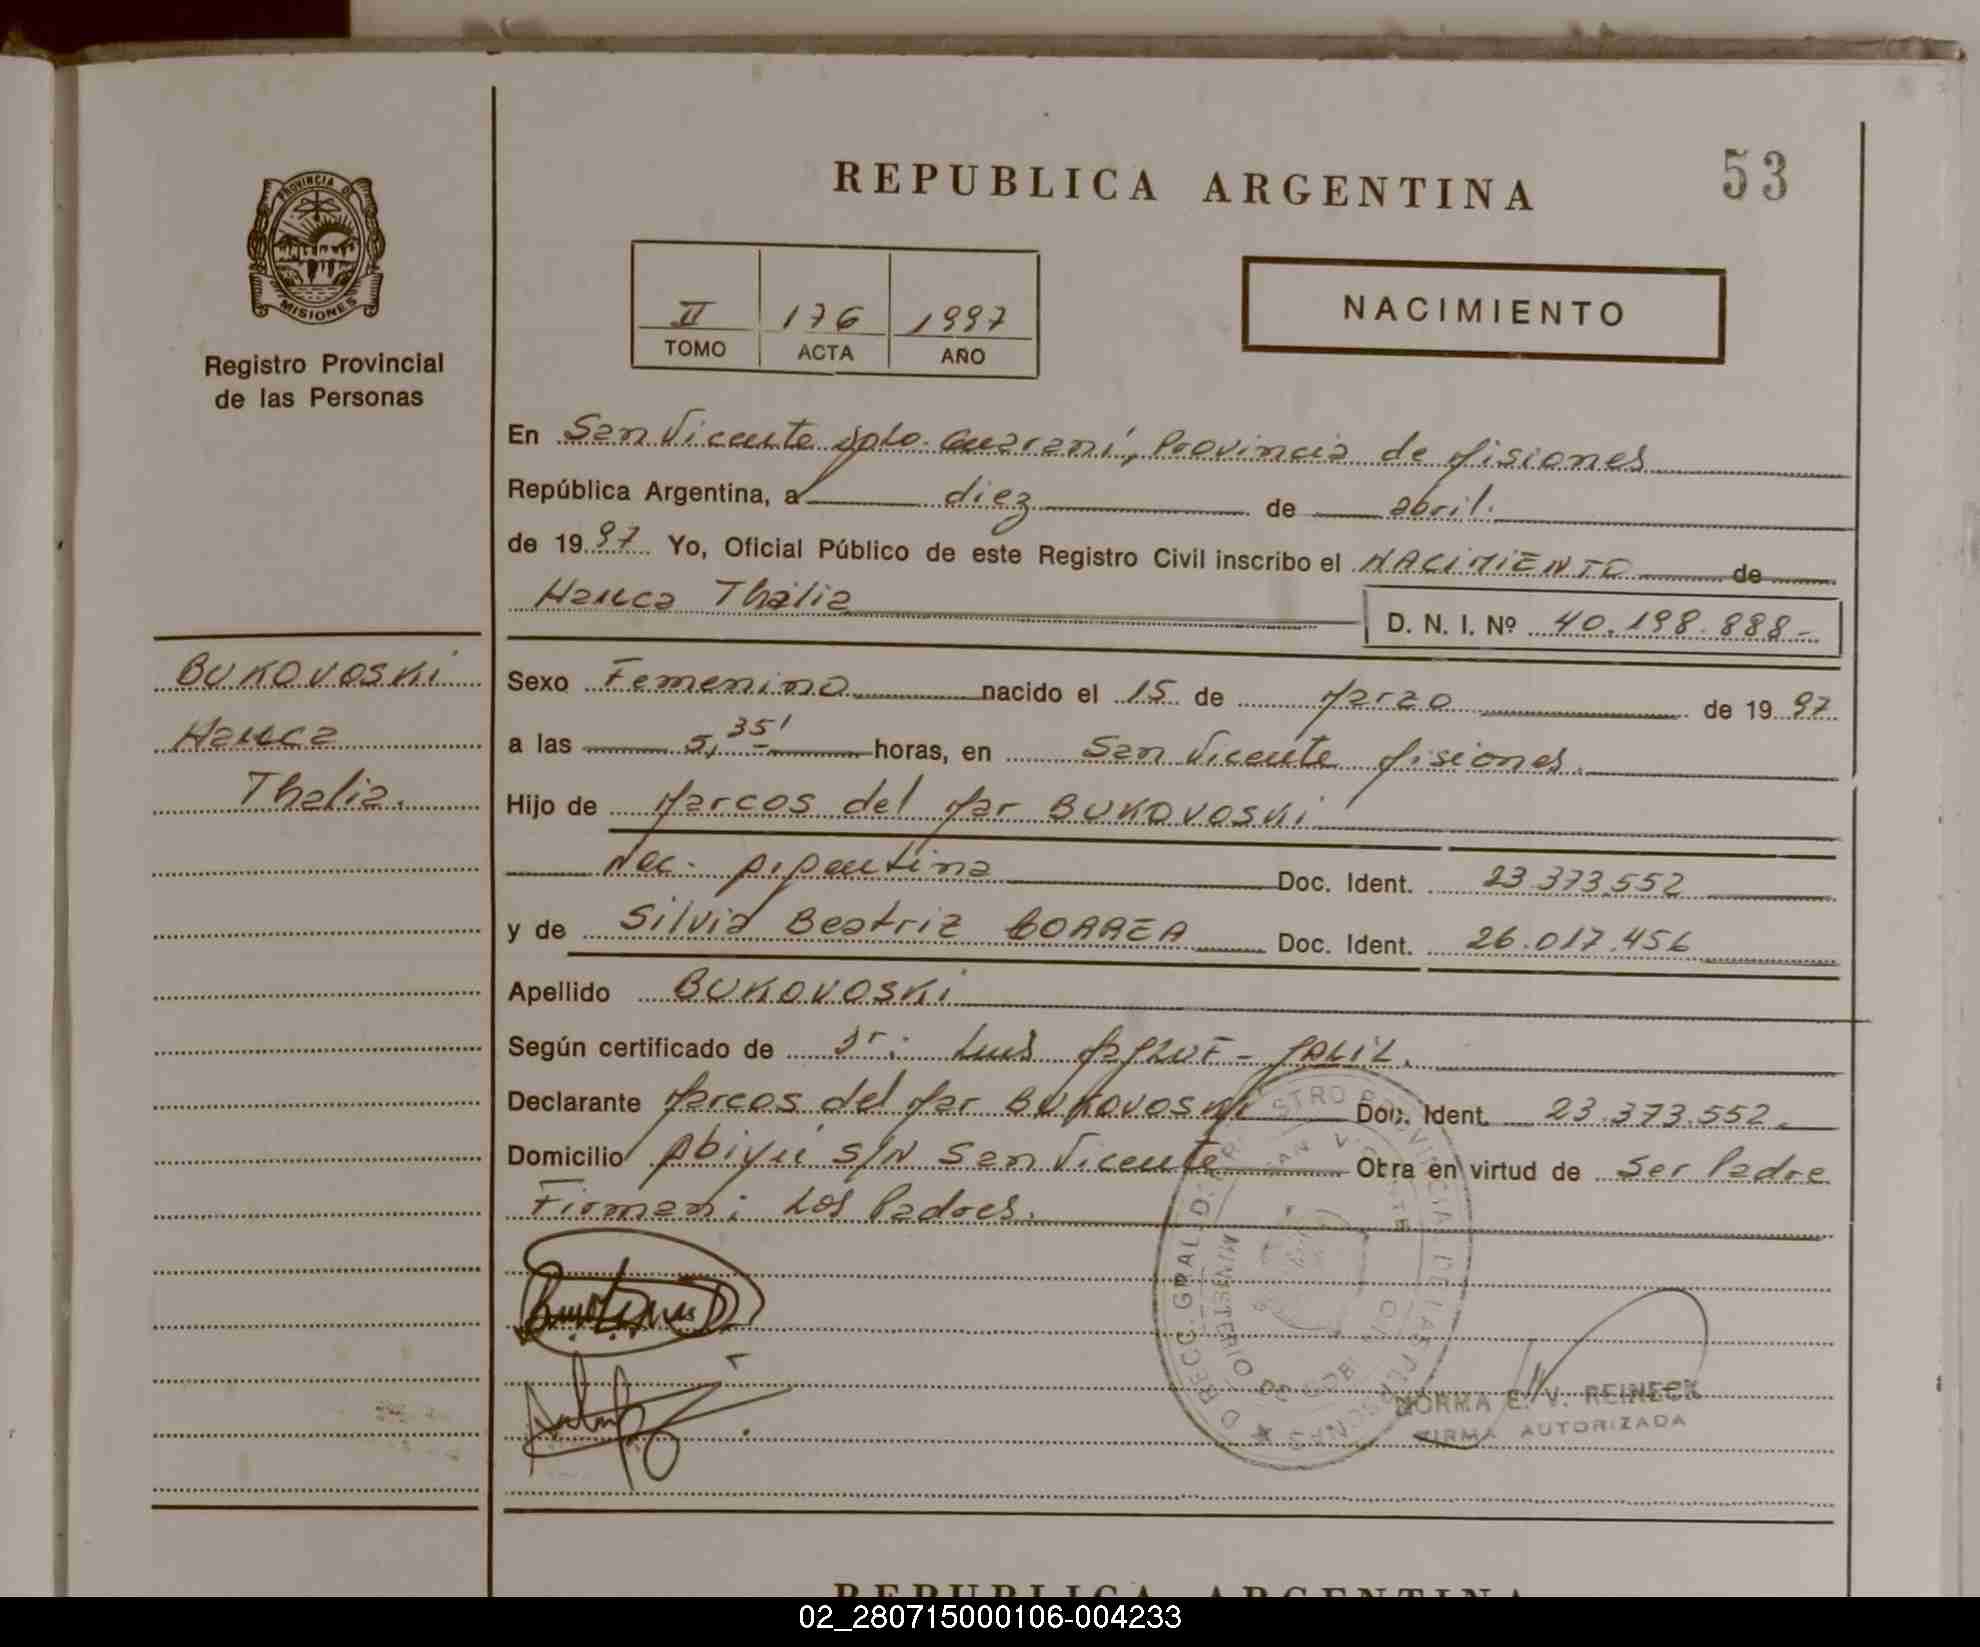 REPUBLICA ARGENTINA
53
PROVINCIA DE
MISIONES
Registro Provincial
de las Personas
II 176 1997
TOMO ACTA AÑO
NACIMIENTO
En San Vicente Dpto. Guaraní, Provincia de Misiones
República Argentina, a diez de abril.
de 1997 Yo, Oficial Público de este Registro Civil inscribo el NACIMIENTO de
Hanca Thalia
D. N. I. Nº 40.198.888-
BUKOVOSKI
Hanca
Thalia.
Sexo Femenino nacido el 15 de Marzo de 1997
a las 5,35' horas, en San Vicente Misiones.
Hijo de Marcos del Mar BUKOVOSKI
Nac. Argentina Doc. Ident. 23.373.552
y de Silvia Beatriz CORREA Doc. Ident. 26.017.456
Apellido BUKOVOSKI
Según certificado de Dr: Luis
Declarante Marcos del Mar BUKOVOSKI Doc. Ident. 23.373.552.
Domicilio Abiyú S/N San Vicente Obra en virtud de Ser Padre
Firman: Los Padres.
NORMA E. V. REINECK
FIRMA AUTORIZADA
REPUBLICA ARGENTINA
02_280715000106-004233